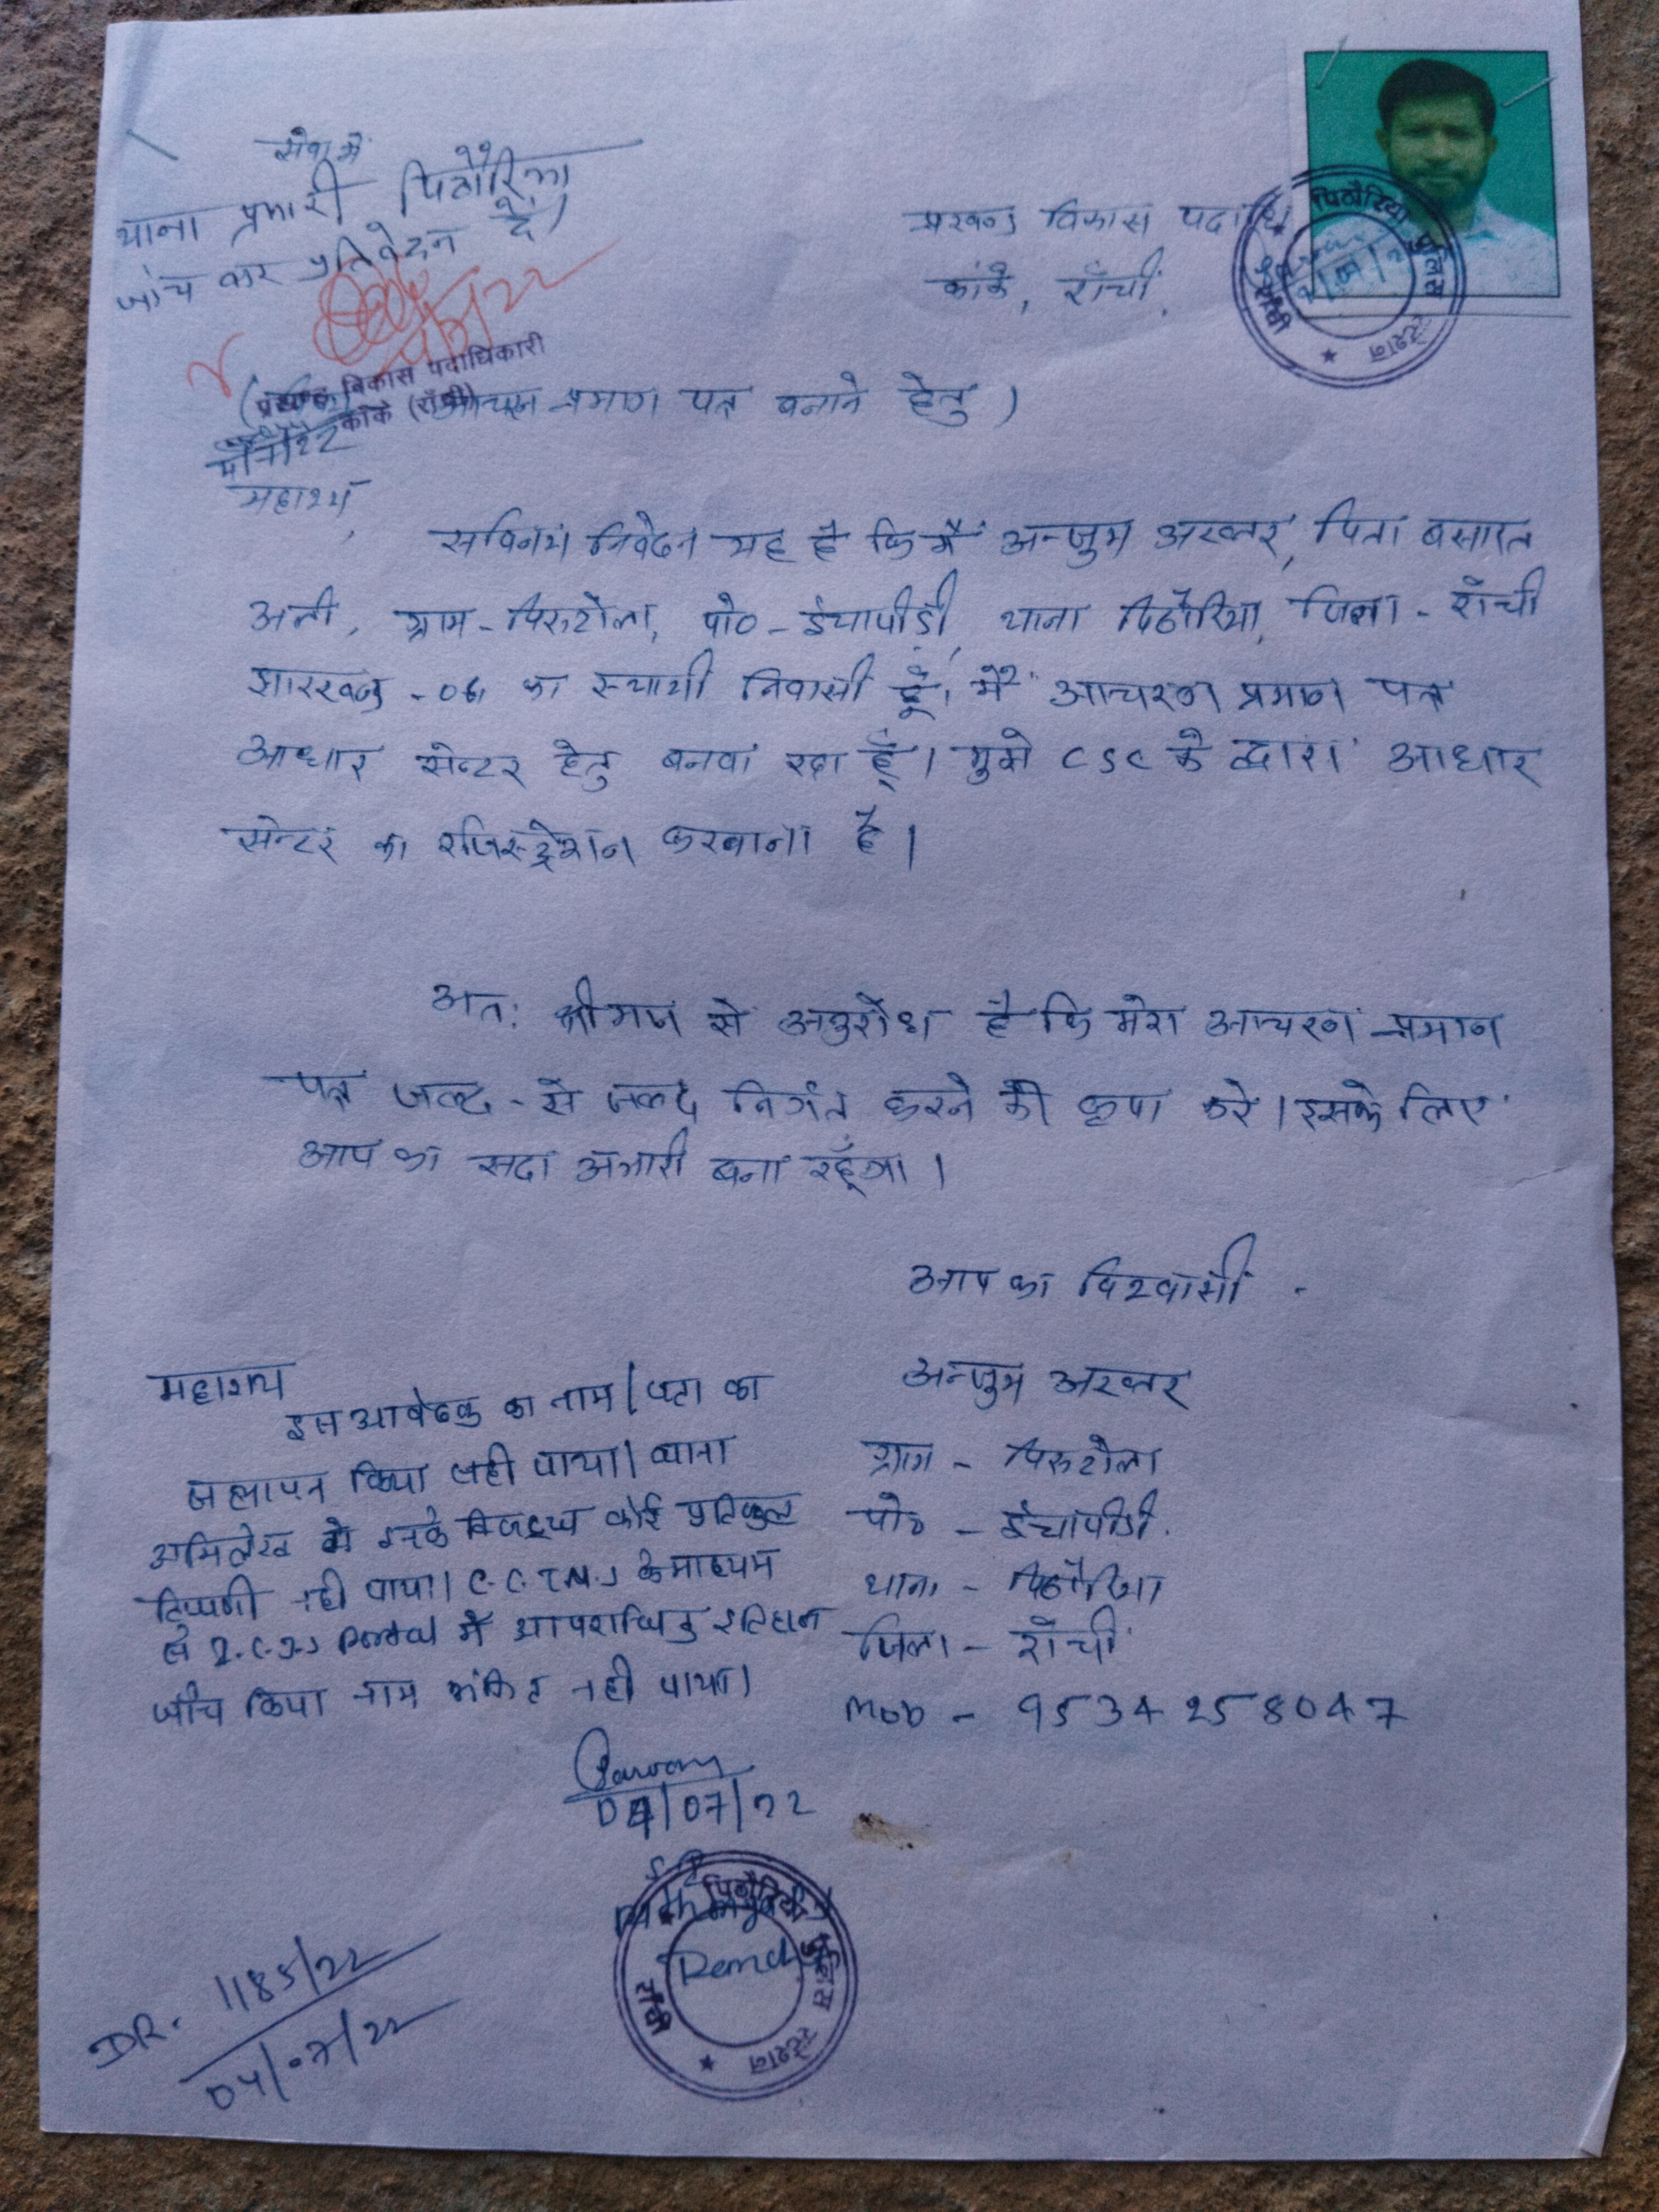 सेवा में
थाना प्रभारी पिठौरिया
जांच कर प्रतिवेदन दें।
प्रखण्ड विकास पदाधि
कांके, राँची,
प्रखण्ड विकास पदाधिकारी
काँके (राँची)
आचरण प्रमाण पत्र बनाने हेतु)
महाशय,
सविनय निवेदन यह है कि मैं अन्जुम अख्तर, पिता बसारत
अली, ग्राम - पिरुटोला, पो० - ईचापीड़ी, थाना पिठौरिया, जिला - राँची
झारखण्ड - 06, का स्थायी निवासी हूँ। मैं आचरण प्रमाण पत्र
आधार सेन्टर हेतु बनवा रहा हूँ। मुझे CSC के द्वारा आधार
सेन्टर का रजिस्ट्रेशन करवाना है।
अतः श्रीमान से अनुरोध है कि मेरा आचरण प्रमाण
पत्र जल्द - से जल्द निर्गत करने की कृपा करे। इसके लिए
आप का सदा अभारी बना रहूँगा।
आप का विश्वासी
अन्जुम अख्तर
ग्राम - पिरुटोला
पो० - ईचापीड़ी
थाना - पिठौरिया
जिला - राँची
Mob - 9534258047
महाशय
इस आवेदक का नाम/पता का
सत्यापन किया सही पाया। थाना
अभिलेख में इनके विरुद्ध कोई प्रतिकूल
टिप्पणी नही पाया। C.C.T.N.S के माध्यम
से I.C.J.S Portal में आपराधिक इतिहास
जाँच किया नाम अंकित नही पाया।
04/07/22
पिठौरिया पुलिस स्टेशन
राँची
DR. 1185/22
04/07/22
पिठौरिया पुलिस स्टेशन
राँची